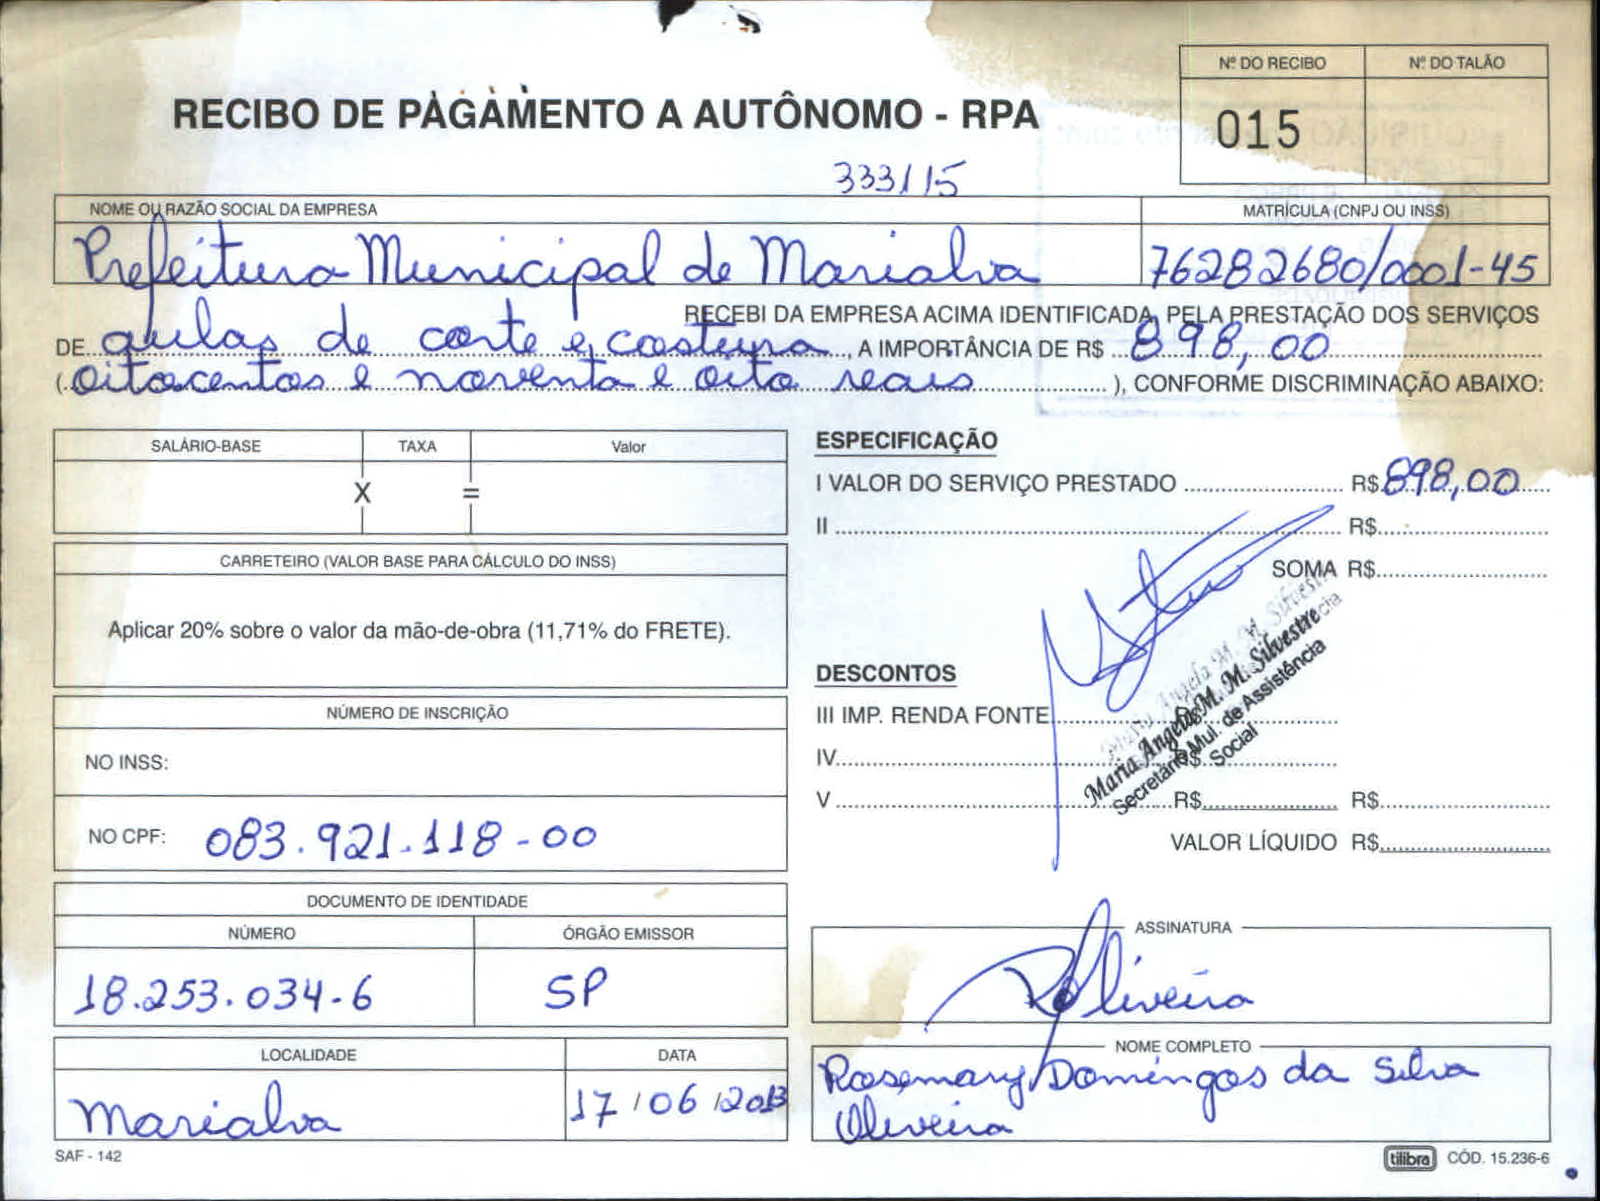 Nº DO RECIBO Nº DO TALÃO
RECIBO DE PAGAMENTO A AUTÔNOMO - RPA
015
333/15
NOME OU RAZÃO SOCIAL DA EMPRESA MATRÍCULA (CNPJ OU INSS)
Prefeitura Municipal de Marialva 76282680/0001-45
RECEBI DA EMPRESA ACIMA IDENTIFICADA, PELA PRESTAÇÃO DOS SERVIÇOS
DE aulas de corte e costura, A IMPORTÂNCIA DE R$ 898,00
(oitocentos e noventa e oito reais), CONFORME DISCRIMINAÇÃO ABAIXO:
SALÁRIO-BASE TAXA Valor
X =
CARRETEIRO (VALOR BASE PARA CÁLCULO DO INSS)
Aplicar 20% sobre o valor da mão-de-obra (11,71% do FRETE).
NÚMERO DE INSCRIÇÃO
NO INSS:
NO CPF: 083.921.118-00
DOCUMENTO DE IDENTIDADE
NÚMERO ÓRGÃO EMISSOR
18.253.034-6 SP
LOCALIDADE DATA
Marialva 17/06/2013
SAF - 142
ESPECIFICAÇÃO
I VALOR DO SERVIÇO PRESTADO R$ 898,00
II R$
SOMA R$
DESCONTOS
III IMP. RENDA FONTE
IV R$
V R$ R$
VALOR LÍQUIDO R$
Maria Angela M. M. Silvestre
Secretária Mui. de Assistência
Social
ASSINATURA
R Oliveira
NOME COMPLETO
Rosemary Domingos da Silva
Oliveira
tilibra CÓD. 15.236-6